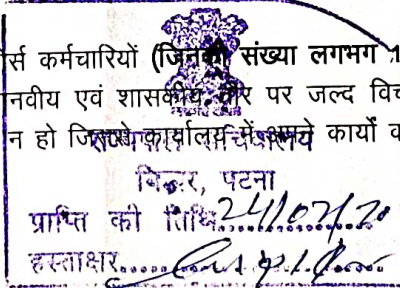 र्स कर्मचारियों (जिनकी संख्या लगभग 1
नवीय एवं शासकीय तौर पर जल्द विच
न हो जिससे कार्यालय में अपने कार्यों व
बिहार, पटना
प्राप्ति की तिथि 24/02/20
हस्ताक्षर